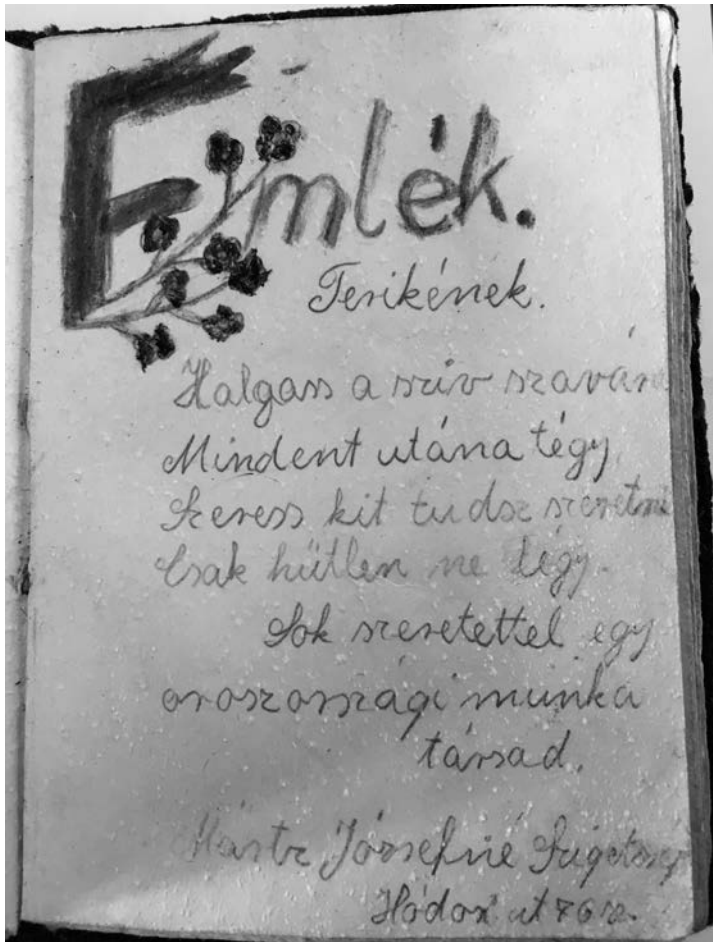 Emlék.
Terikének.
Halgass a sziv szavára
Mindent utána tégy
Szeress kit tudsz szeretni
Csak hütlen ne légy.
Sok szeretettel egy
oroszországi munka
társad.
Józsefné
út 76 sz.